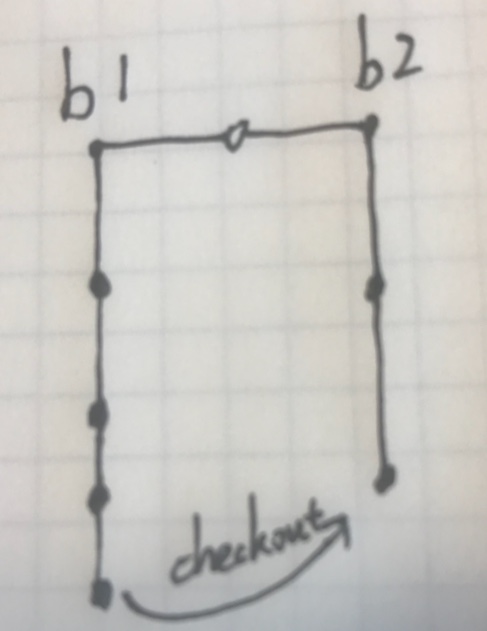 b1
b2
checkout